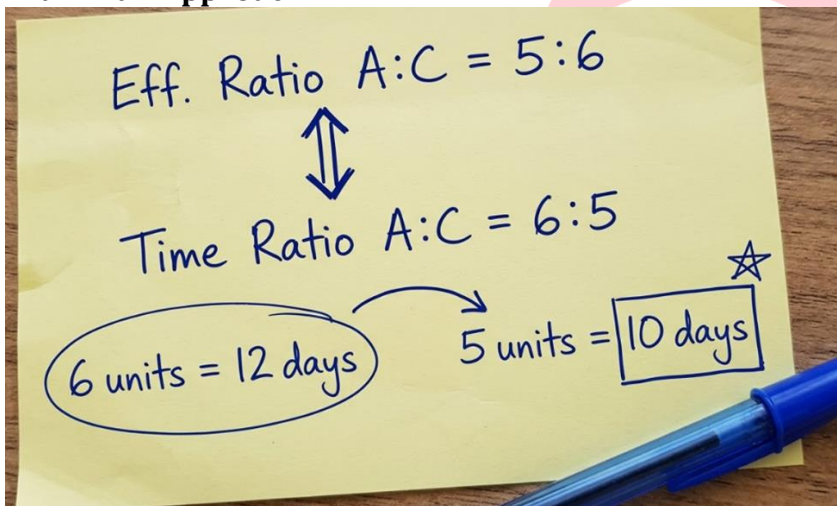 Eff. Ratio A:C = 5:6
Time Ratio A:C = 6:5
6 units = 12 days
5 units = 10 days